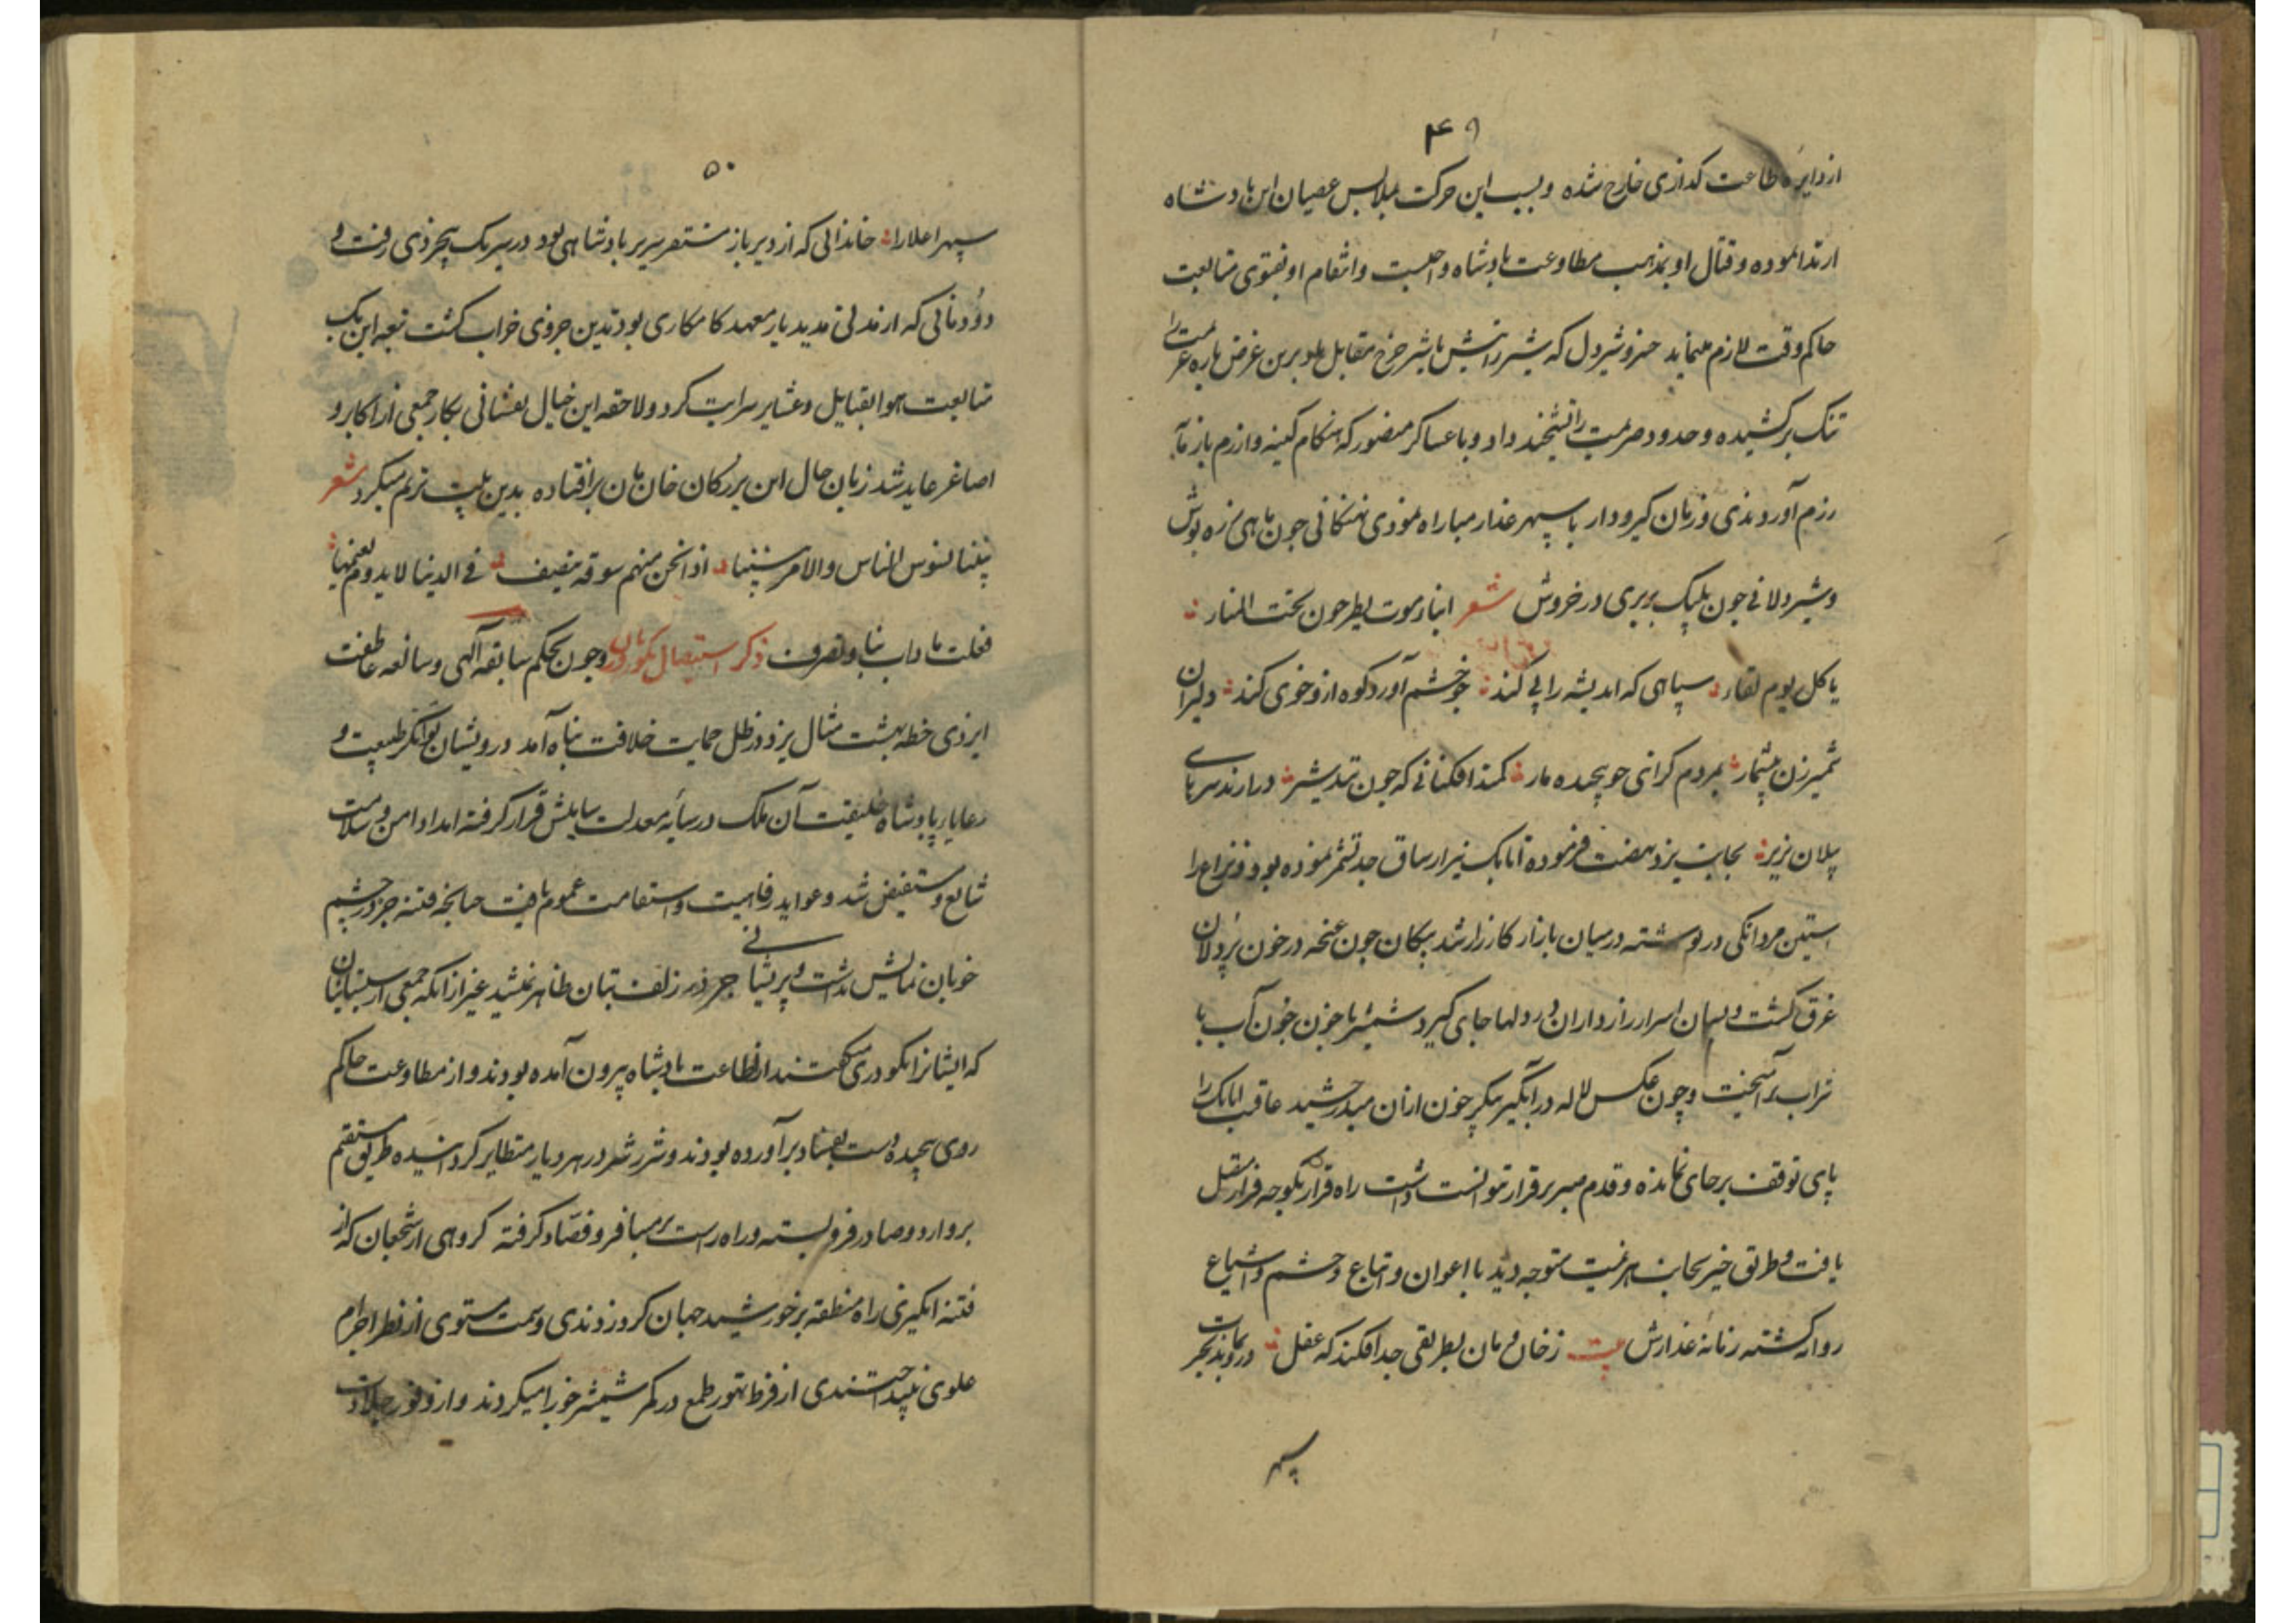 ۴۹
از دایره طاعت گذاری خارج شده و بسبب این حرکت بملابس عصیان این پادشاه
ارتدا نموده و قتال او بمذهب مطاوعت پادشاه واجبست و انتقام او بفتوی متابعت
حاکم وقت لازم مینماید خسرو شیردل که شیر رانیش با شیر چرخ مقابل بلو برین غرض باره عزیمت را
تنک برکشیده و حدود صرمیت را تشحیذ داد و با عساکر منصور که هنکام کینه وازرم باز ما
رزم آوردندی و زمان کیرودار با سپهر غدار مباراه نمودی نهنکانی جون ماهی زره پوش
و شیردلانی جون پلنک بربری در خروش شعر ابناء موت یطرحون تحت المنار
یا کل یوم لقار سپاهی که اندیشه را پی کند جو خشم آورد کوه ازو خوی کند دلیران
شمیرزن بیشمار بمردم کرانی جو پیچیده مار کمند افکنانی که جون تند شیر درارند سرهای
پیلان بزیر بجانب یزد نهضت فرموده اتابک نیز از ساق جد تشمر نموده بود و ذراع را
استین مردانکی در نوشته در میان بازار کارزار شد پیکان جون غنچه در خون پردلان
غرق کشت و بسان اسرار رازداران در دلها جای کیرد شمشیر با خون جون آب با
تراب برآمیخت و چون عکس لاله در آبکیر پیکر خون ازان میدرخشید عاقبت اتابک را
پای توقف برجای نمانده و قدم صبر برقرار نتوانست داشت راه قرار بکوچه فرار منتقل
یافت و طریق خیر بجانب هزیمت متوجه دید با اعوان و اتباع و حشم و اشیاع
روانه کشته زمانه غدارش بیت ز خان و مان بطریقی جدا فکند که عقل درو بماند بحیرت
سپهر
۵۰
سپهر اعلا را خاندانی که از دیر باز مستقر سریر پادشاهی بود در سر یک بیخردی رفت و
دودمانی که از مدتی مدید باز معهد کامکاری بود بدین جروی خراب کشت تبعه این یک
متابعت هوا بقبایل و عشایر سرایت کرد و لاحقه این خیال نفسانی بکار جمعی از اکابر و
اصاغر عاید شد زبان حال این بزرکان خان مان برافتاده بدین بیت ترنم میکرد شعر
بیننا نسوس الناس والامر بیننا اذا نحن منهم سوقه ننصف فی الدنیا لایدوم نعیمها
فغلت ما داب بنا و تصرف ذکر استیصال نکودریان وجون بحکم سابقه آلهی و سالفه عاطفت
ایزدی خطه بهشت مثال یزد در ظل حمایت خلافت پناه آمد درویشان توانکر طبیعت و
رعایاء پادشاه خلیقت آن ملک در سایه معدلت سایلش قرار کرفته امداد امن و سلامت
شایع و مستفیض شد و عواید رفاهیت و استقامت عموم یافت جنانچه فتنه جز در چشم
خوبان نمایش نداشت و پریشانی جز در زلف بتان ظاهر نمیشد غیر از انکه جمعی از سیستانیان
که ایشانرا نکودری کفتند از طاعت پادشاه بیرون آمده بودند و از مطاوعت حاکم
روی پیچیده دست بفساد برآورده بودند و شرر شر در هر دیار متطایر کردانیده طریق مستقیم
بر وارد و صادر فرو بسته و راه راست بر مسافر و قصاد کرفته کروهی از شجعان که از
فتنه انکیزی راه منطقه بر خورشید جهان کرد زدندی و سمت مستوی از نظر اجرام
علوی بپیداختندی از فرط تهور طمع در کمر شمشیر خور را میکردند و از وفور جلادت